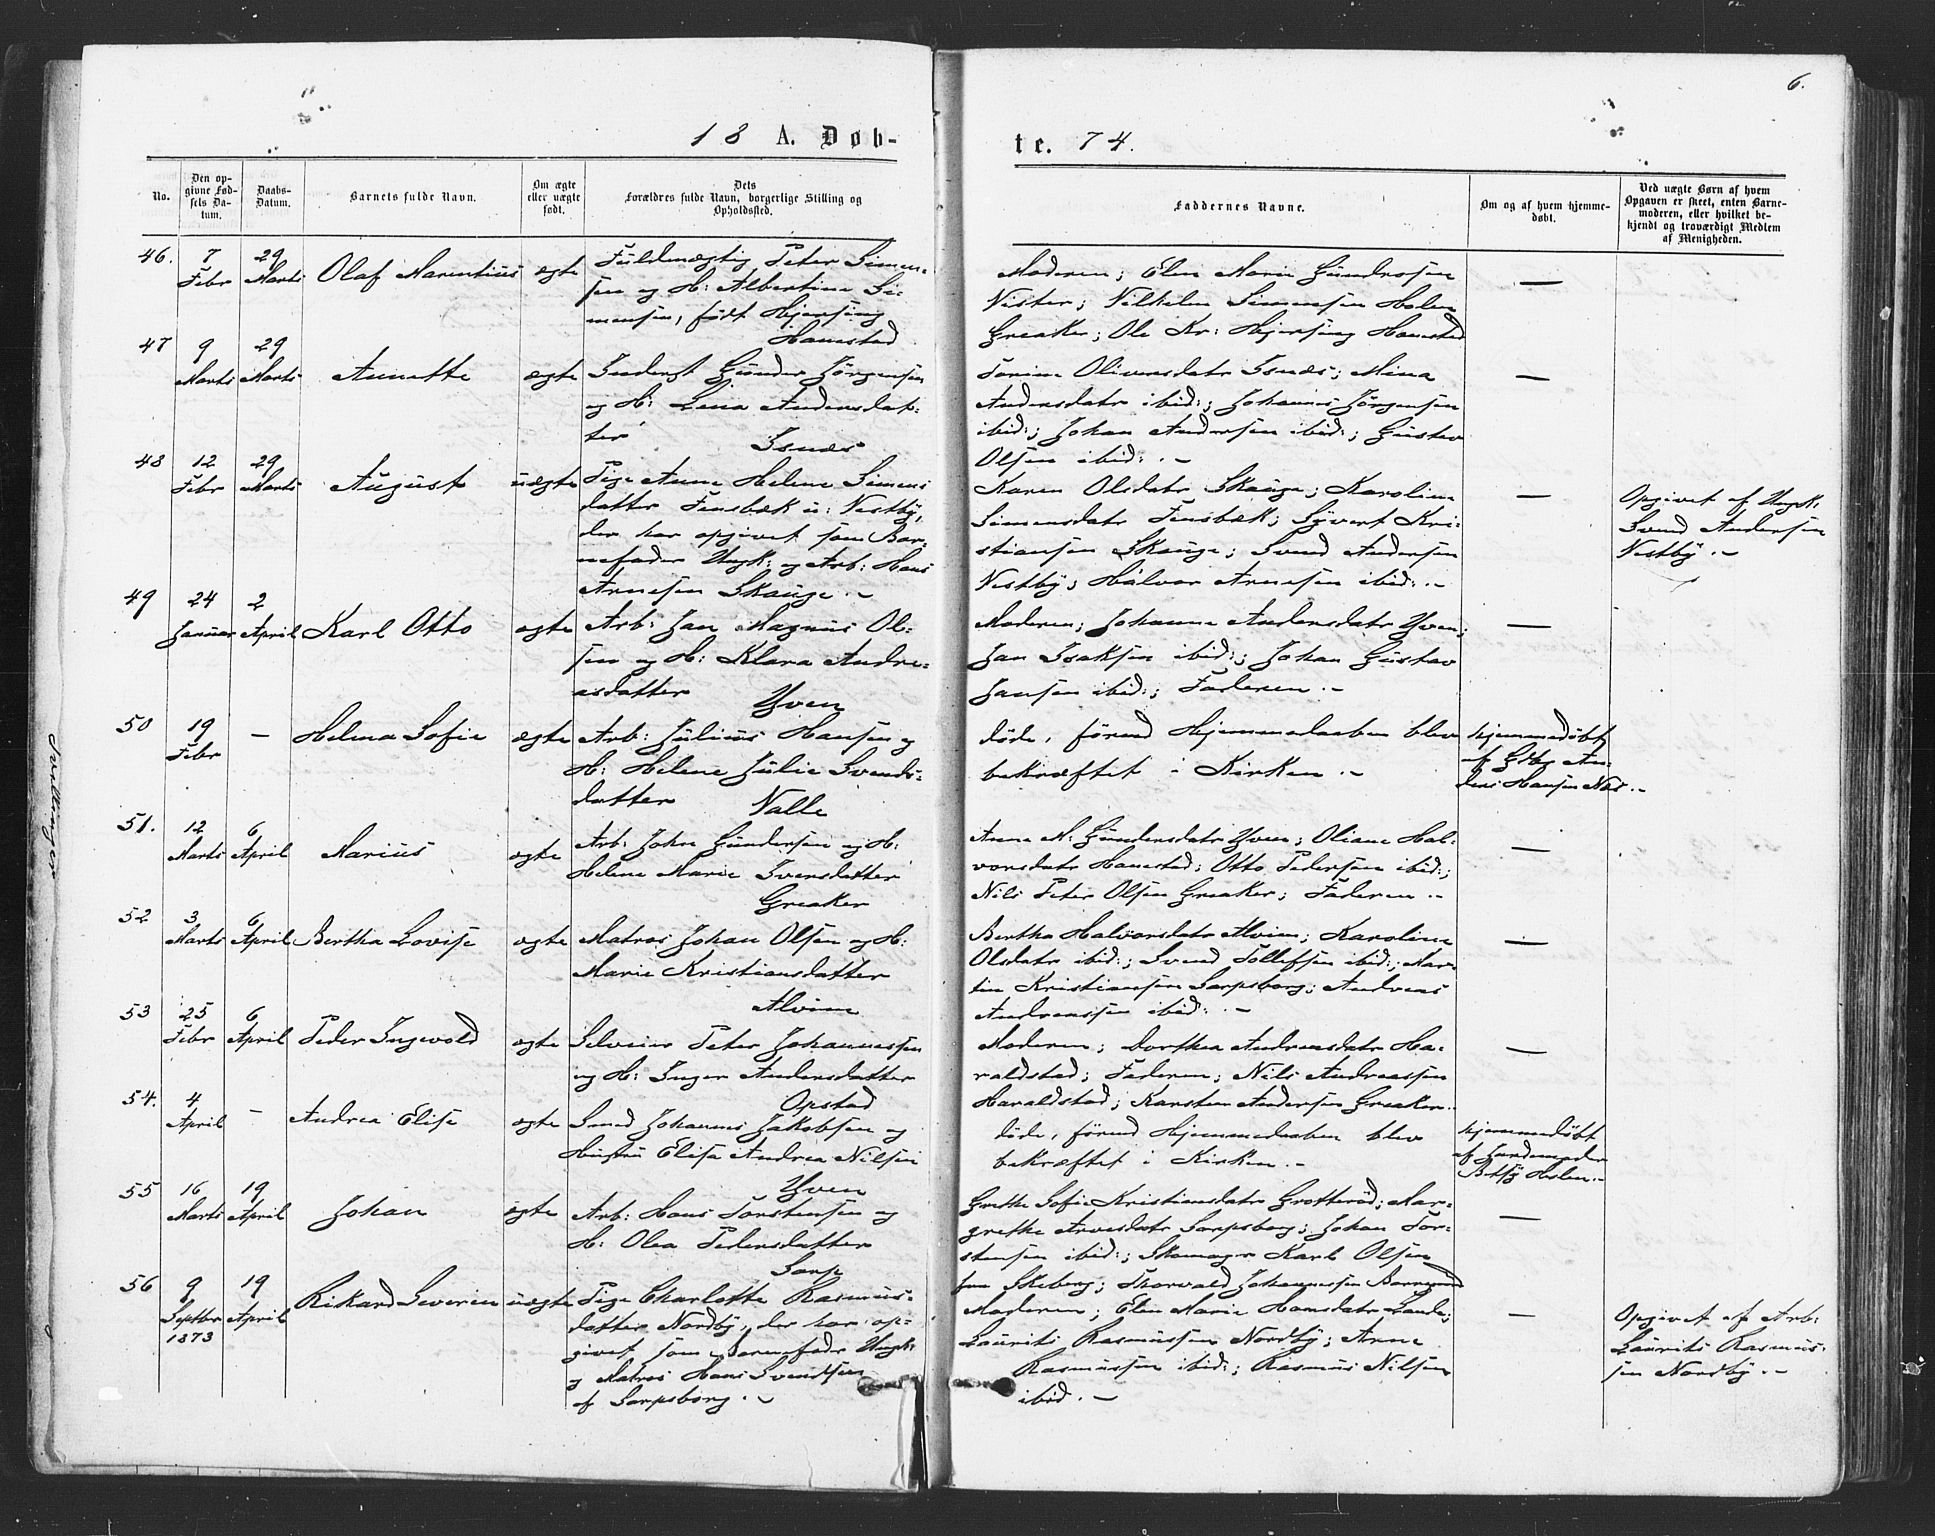 6.
18 A. Døb-
te. 74.
No.
Den op-
givne Fød-
sels Da-
tum.
Daabs-
Datum.
Barnets fulde Navn.
Om ægte
eller uægte
født.
Dets
Forældres fulde Navn, borgerlige Stilling og
Opholdssted.
Faddernes Navne.
Om og af hvem hjemme-
døbt.
Ved uægte Børn af hvem
Opgaven er skeet, enten Barne-
moderen, eller hvilket be-
kjendt og troværdigt Medlem
af Menigheden.
46.
7
Febr
29
Marts
Olaf Marentius
ægte
Fuldmægtig Peter Simen-
sen og H: Albertine Si-
mensen, født Hjersing
Hanestad
Moderen; Elen Marie Gundersen
Vister; Vilhelm Simensen Holen
Greaker; Ole Kr: Hjersing Hanestad
—
47
9
Marts
29
Marts
Annette
ægte
Inderst Gunder Jørgensen
og H: Lina Andersdat-
ter
Isnæs
Torine Oliversdatr Isnæs; Mina
Andersdatr ibid:; Johannes Jørgensen
ibid:; Johan Andersen ibid:; Gustav
Olsen ibid: .-
—
48
12
Febr
29
Marts
August
uægte
Pige Anne Helene Simens
datter Fensbæk u: Vestby,
der har opgivet som Bar-
nefader Ungk: og Arb: Hans
Arnesen Skauge .-
Karen Olsdatr Skauge; Karoline
Simensdatr Fensbæk; Syvert Kri-
stiansen Skauge; Svend Andersen
Vestby; Halvor Arnesen ibid: .-
—
Opgivet af Ungk:
Svend Andersen
Vestby .-
49
24
Januar
2
April
Karl Otto
ægte
Arb: Jan Magnus Ol-
sen og H: Klara Andre-
asdatter
Yven
Moderen; Johanne Andersdatr Yven;
Jan Isaksen ibid:; Johan Gustav
Jansen ibid:; Faderen .-
—
50
19
Febr
-
Helma Sofie
ægte
Arb: Julius Hansen og
H: Helene Julie Svends-
datter
Valle
døde, førend Hjemmedaaben blev
bekræftet i Kirken .-
hjemmedøbt
af An-
ders Hansen Næs .-
51.
12
Marts
6
April
Marius
ægte
Arb: John Gundersen og H:
Helene Marie Iversdatter
Greaker
Anne M: Gundersdatr Yven; Oliane Hal-
vorsdatr Hanestad; Otto Pedersen ibid:;
Nils Peter Olsen Greaker; Faderen .-
—
52
3
Marts
6
April
Bertha Lovise
ægte
Matros Johan Olsen og H:
Marie Kristiansdatter
Alvim
Bertha Halvorsdatr Alvim; Karoline
Olsdatr ibid:; Svend Tollefsen ibid:; Mar-
tin Kristiansen Sarpsborg; Andreas
Andreassen ibid: .-
—
53
25
Febr
6
April
Peder Ingvold
ægte
Selveier Peter Johannessen
og H: Inger Andersdatter
Opstad
Moderen; Dorthea Andreasdatr Ha-
raldstad; Faderen; Nils Andreassen
Haraldstad; Karsten Andersen Greaker .
—
54.
4
April
-
Andrea Elise
ægte
Smed Johannes Jakobsen og
Hustru Elise Andrea Nilsen
Yven
døde, førend Hjemmedaaben blev
bekræftet i Kirken .-
hjemmedøbt
af Jordemoder
Betsy Holen .-
55
16
Marts
19
April
Johan
ægte
Arb: Hans Torstensen og
H: Olea Pedersdatter
Sarp
Grethe Sofie Kristiansdatr Grotterød; Mar-
grethe Arnesdatr Sarpsborg; Johan Tor-
stensen ibid:; Skomager Karl Olsen
fra Skiberg; Thorvald Johannessen Borregaard
—
56
9
Septbr
1873
19
April
Rikard Severin
uægte
Pige Charlotte Rasmus-
datter Nordby, der har op-
givet som Barnefader Ungk:
og Matros Hans Svendsen
af Sarpsborg .-
Moderen; Elen Marie Hansdatr Lande;
Laurits Rasmussen Nordby; Arne
Rasmussen ibid:; Rasmus Nilsen
ibid .-
—
Opgivet af Arb:
Laurits Rasmus-
sen Nordby .-